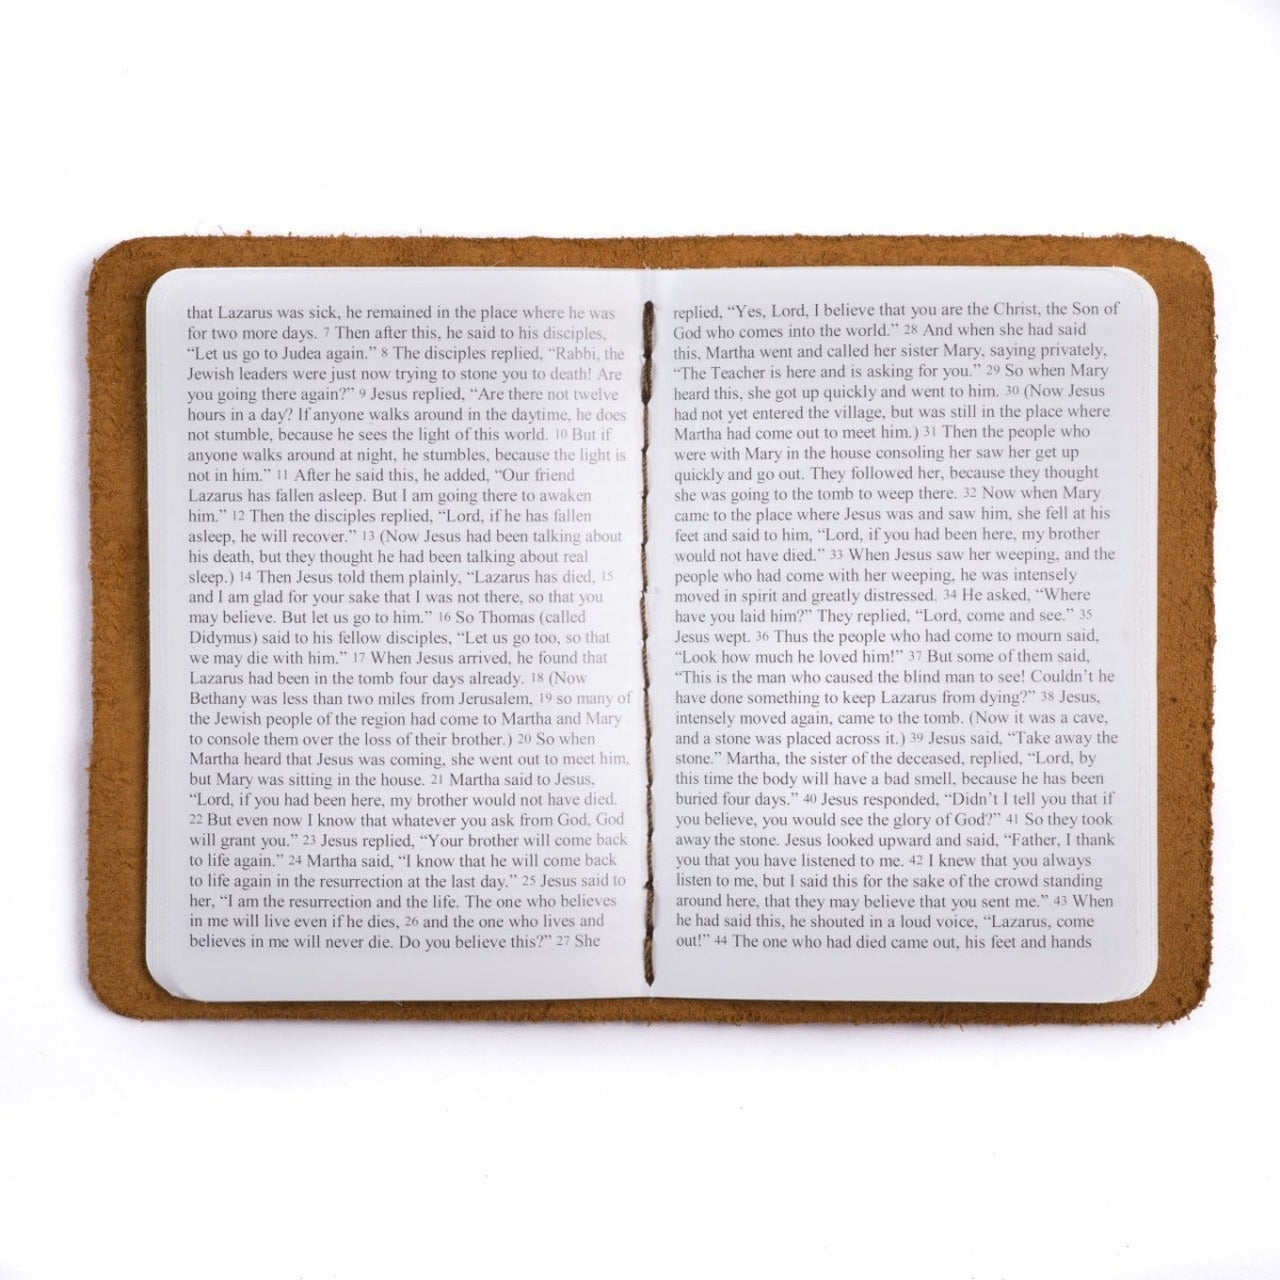 that Lazarus was sick, he remained in the place where he was
for two more days. 7 Then after this, he said to his disciples,
“Let us go to Judea again.” 8 The disciples replied, “Rabbi, the
Jewish leaders were just now trying to stone you to death! Are
you going there again?” 9 Jesus replied, “Are there not twelve
hours in a day? If anyone walks around in the daytime, he does
not stumble, because he sees the light of this world. 10 But if
anyone walks around at night, he stumbles, because the light is
not in him.” 11 After he said this, he added, “Our friend
Lazarus has fallen asleep. But I am going there to awaken
him.” 12 Then the disciples replied, “Lord, if he has fallen
asleep, he will recover.” 13 (Now Jesus had been talking about
his death, but they thought he had been talking about real
sleep.) 14 Then Jesus told them plainly, “Lazarus has died, 15
and I am glad for your sake that I was not there, so that you
may believe. But let us go to him.” 16 So Thomas (called
Didymus) said to his fellow disciples, “Let us go too, so that
we may die with him.” 17 When Jesus arrived, he found that
Lazarus had been in the tomb four days already. 18 (Now
Bethany was less than two miles from Jerusalem, 19 so many of
the Jewish people of the region had come to Martha and Mary
to console them over the loss of their brother.) 20 So when
Martha heard that Jesus was coming, she went out to meet him,
but Mary was sitting in the house. 21 Martha said to Jesus,
“Lord, if you had been here, my brother would not have died.
22 But even now I know that whatever you ask from God, God
will grant you.” 23 Jesus replied, “Your brother will come back
to life again.” 24 Martha said, “I know that he will come back
to life again in the resurrection at the last day.” 25 Jesus said to
her, “I am the resurrection and the life. The one who believes
in me will live even if he dies, 26 and the one who lives and
believes in me will never die. Do you believe this?” 27 She
replied, “Yes, Lord, I believe that you are the Christ, the Son of
God who comes into the world.” 28 And when she had said
this, Martha went and called her sister Mary, saying privately,
“The Teacher is here and is asking for you.” 29 So when Mary
heard this, she got up quickly and went to him. 30 (Now Jesus
had not yet entered the village, but was still in the place where
Martha had come out to meet him.) 31 Then the people who
were with Mary in the house consoling her saw her get up
quickly and go out. They followed her, because they thought
she was going to the tomb to weep there. 32 Now when Mary
came to the place where Jesus was and saw him, she fell at his
feet and said to him, “Lord, if you had been here, my brother
would not have died.” 33 When Jesus saw her weeping, and the
people who had come with her weeping, he was intensely
moved in spirit and greatly distressed. 34 He asked, “Where
have you laid him?” They replied, “Lord, come and see.” 35
Jesus wept. 36 Thus the people who had come to mourn said,
“Look how much he loved him!” 37 But some of them said,
“This is the man who caused the blind man to see! Couldn’t he
have done something to keep Lazarus from dying?” 38 Jesus,
intensely moved again, came to the tomb. (Now it was a cave,
and a stone was placed across it.) 39 Jesus said, “Take away the
stone.” Martha, the sister of the deceased, replied, “Lord, by
this time the body will have a bad smell, because he has been
buried four days.” 40 Jesus responded, “Didn’t I tell you that if
you believe, you would see the glory of God?” 41 So they took
away the stone. Jesus looked upward and said, “Father, I thank
you that you have listened to me. 42 I knew that you always
listen to me, but I said this for the sake of the crowd standing
around here, that they may believe that you sent me.” 43 When
he had said this, he shouted in a loud voice, “Lazarus, come
out!” 44 The one who had died came out, his feet and hands